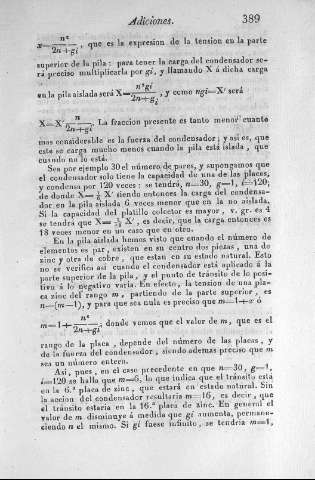 Adiciones. 389
x= n²/2n+gi , que es la expresion de la tension en la parte
superior de la pila: para tener la carga del condensador se-
rá preciso multiplicarla por gi, y llamando X á dicha carga
en la pila aislada será X= n²gi/2n+gi , y como ngi=X' será
X=X' n/2n+gi. La fraccion presente es tanto menor cuanto
mas considerable es la fuerza del condensador; y asi es, que
este se carga mucho menos cuando la pila está islada, que
cuando no lo está.
Sea por ejemplo 30 el número de pares, y supongamos que
el condensador solo tiene la capacidad de una de las placas,
y condensa por 120 veces: se tendrá, n=30, g=1, i=120;
de donde X= X' siendo entonces la carga del condensa-
dor en la pila aislada 6 veces menor que en la no aislada.
Si la capacidad del platillo colector es mayor, v. gr. es 4
se tendrá que X= X', es decir, que la carga entonces es
18 veces menor en un caso que en otro.
En la pila aislada hemos visto que cuando el número de
elementos es par, existen en su centro dos piezas, una de
zinc y otra de cobre, que estan en su estado natural. Esto
no se verifica asi cuando el condensador está aplicado á la
parte superior de la pila, y el punto de tránsito de lo posi-
tivo á lo negativo varia. En efecto, la tension de una pla-
ca zinc del rango m, partiendo de la parte superior, es
n—(m—1), y para que sea nula es preciso que m=1+x ó
m=1+ n²/2n+gi; donde vemos que el valor de m, que es el
rango de la placa, depende del número de las placas, y
de la fuerza del condensador, siendo ademas preciso que m
sea un número entero.
Asi, pues, en el caso precedente en que n=30, g=1,
i=120 se halla que m=6, lo que indica que el tránsito está
en la 6.ª placa de zinc, que estará en estado natural. Sin
la accion del condensador resultaria m=16, es decir, que
el tránsito estaria en la 16.ª placa de zinc. En general el
valor de m disminuye á medida que gi aumenta, permane-
ciendo n el mismo. Si gi fuese infinito, se tendria m=1,